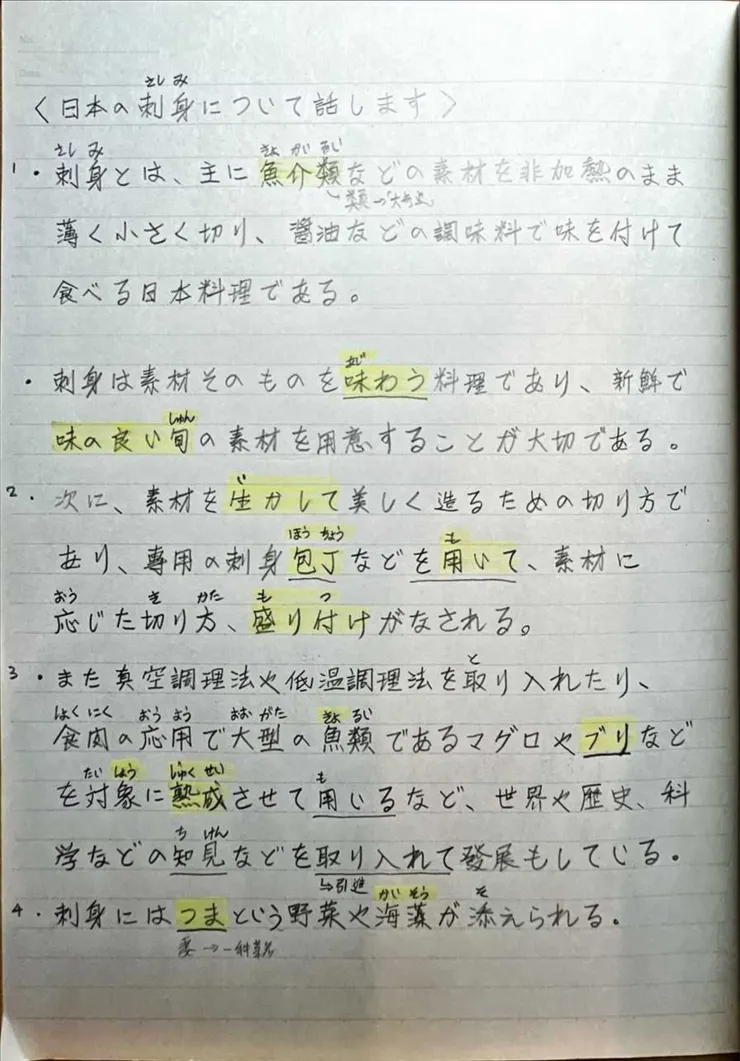 さしみ
〈日本の刺身について話します〉
さしみ ぎょかいるい
1・刺身とは、主に魚介類などの素材を非加熱のまま
類→
薄く小さく切り、醤油などの調味料で味を付けて
食べる日本料理である。
あじ
・刺身は素材そのものを味わう料理であり、新鮮で
しゅん
味の良い旬の素材を用意することが大切である。
い
2・次に、素材を生かして美しく造るための切り方で
ほうちょう も
あり、專用の刺身包丁などを用いて、素材に
おう き かた も つ
応じた切り方、盛り付けがなされる。
と
3・また真空調理法や低温調理法を取り入れたり、
しょくにく おうよう おおがた ぎょるい
食肉の応用で大型の魚類であるマグロやブリなど
たいしょう じゅくせい も
を対象に熟成させて用いるなど、世界や歴史、科
ち けん
学などの知見などを取り入れて發展もしている。
↳引進 かいそう そ
4・刺身にはつまという野菜や海藻が添えられる。
妻→一種菜名